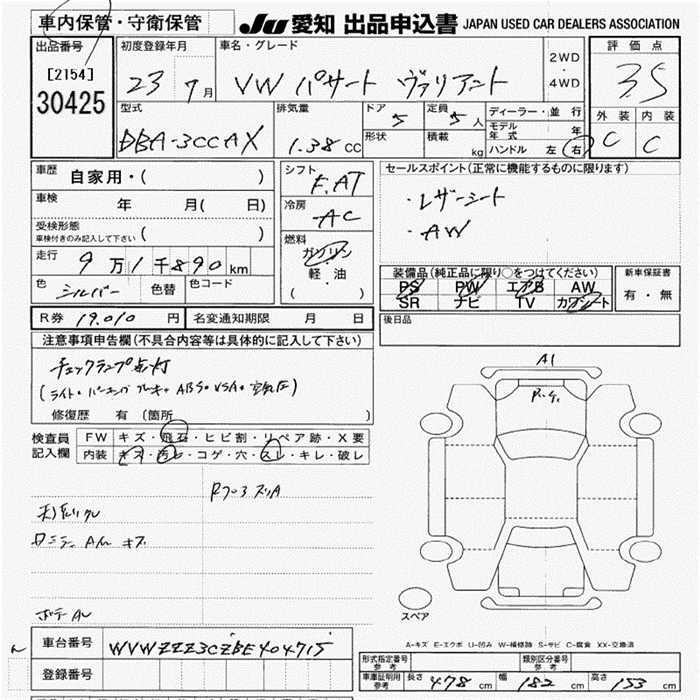 車内保管・守衛保管 JU 愛知 出品申込書 JAPAN USED CAR DEALERS ASSOCIATION
出品番号 初度登録年月 車名・グレード 2WD・4WD 評価点
[2154] 30425 23 7月 VW パサート ヴァリアント 3.5
型式 排気量 ドア 定員 ディーラー・並行 外装 内装
DBA-3CCAX 1.38 CC 5 5人 モデル年式 年 C C
形状 積載 kg ハンドル 左 右
車歴 自家用・( ) シフト F.AT セールスポイント(正常に機能するものに限ります)
車検 年 月( 日) 冷房 AC ・レザーシート
受検形態 車検付きのみ記入して下さい ( ) ・AW
走行 9万1千890km 燃料 ガソリン 軽・油 ( )
装備品(純正品に限り○をつけてください) 新車保証書
色 シルバー 色替 色コード PS PW エアB AW 有・無
SR ナビ TV カワシート
R券 19.010 円 名変通知期限 月 日 後日品
注意事項申告欄(不具合内容等は具体的に記入して下さい)
チェックランプ点灯
修復歴 有 (箇所 )
A1
検査員記入欄 FW キズ・飛石・ヒビ割・リペア跡・X要
内装 キズ・汚レ・コゲ・穴・スレ・キレ・破レ
スペア
A-キズ E-エクボ U-凹み W-補修跡 S-サビ C-腐食 XX-交換済
車台番号 WVWZZZ3CZBE404715
登録番号
形式指定番号 参考 類別区分番号 参考
車庫証明用 参考 長さ 478 cm 幅 182 cm 高さ 153 cm